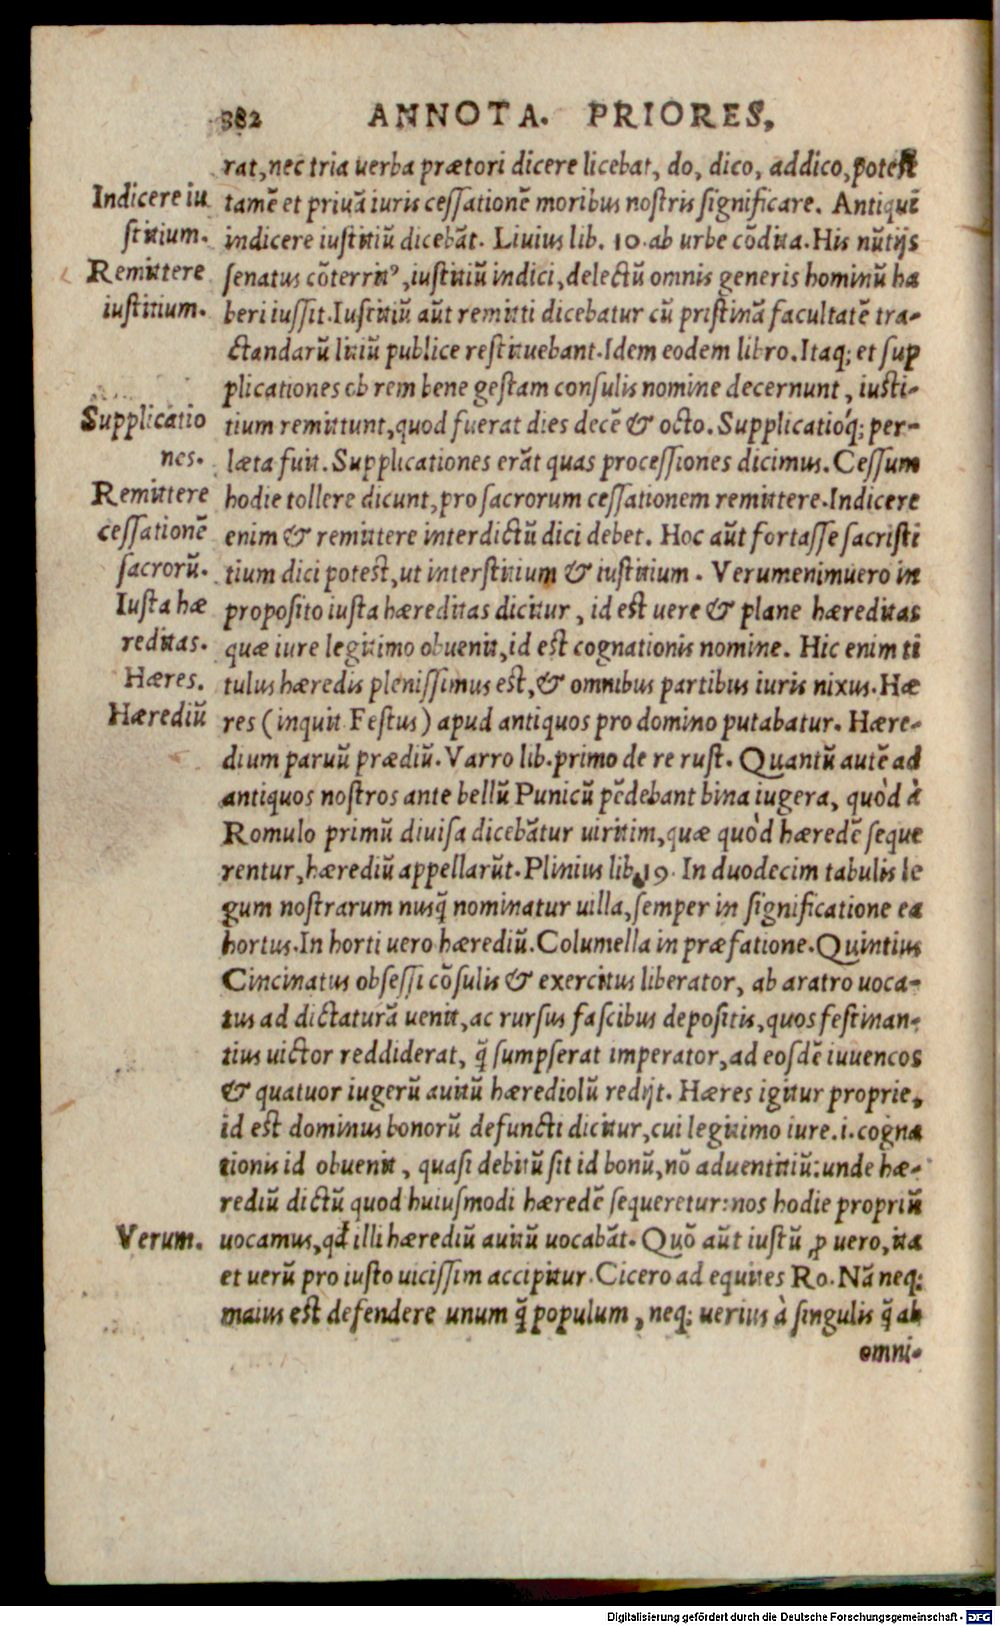 382 ANNOTA. PRIORES,
rat, nec tria uerba prætori dicere licebat, do, dico, addico, potest
Indicere iu
tamẽ et priuã iuris cessationẽ moribus nostris significare. Antiqui
stitium.
indicere iustitiũ dicebãt. Liuius lib. 10. ab urbe cõdita. His nũtijs
Remittere
senatus cõterritꝰ, iustitiũ indici, delectũ omnis generis hominũ ha
iustitium.
beri iussit. Iustitiũ aũt remitti dicebatur cũ pristinã facultatẽ tra-
ctandarũ litiũ publice restituebant. Idem eodem libro. Itaq; et sup
plicationes ob rem bene gestam consulis nomine decernunt, iusti-
Supplicatio
tium remittunt, quod fuerat dies decẽ & octo. Supplicatióq; per-
nes.
læta fuit. Supplicationes erãt quas processiones dicimus. Cessum
Remittere
hodie tollere dicunt, pro sacrorum cessationem remittere. Indicere
cessationẽ
enim & remittere interdictũ dici debet. Hoc aũt fortasse sacristi
sacrorũ.
tium dici potest, ut interstitium & iustitium. Verumenimuero in
Iusta hæ
proposito iusta hæreditas dicitur, id est uere & plane hæreditas
reditas.
quæ iure legitimo obuenit, id est cognationis nomine. Hic enim ti
Hæres.
tulus hæredis plenissimus est, & omnibus partibus iuris nixus. Hæ
Hærediũ
res (inquit Festus) apud antiquos pro domino putabatur. Hære-
dium paruũ prædiũ. Varro lib. primo de re rust. Quantũ autẽ ad
antiquos nostros ante bellũ Punicũ pẽdebant bina iugera, quòd à
Romulo primũ diuisa dicebãtur uiritim, quæ quòd hæredẽ seque
rentur, hærediũ appellarũt. Plinius lib. 19. In duodecim tabulis le
gum nostrarum nusq̃ nominatur uilla, semper in significatione ea
hortus. In horti uero hærediũ. Columella in præfatione. Quintius
Cincinatus obsessi cõsulis & exercitus liberator, ab aratro uoca-
tus ad dictaturã uenit, ac rursus fascibus depositis, quos festinan-
tius uictor reddiderat, q̃ sumpserat imperator, ad eosdẽ iuuencos
& quatuor iugerũ auitũ hærediolũ redijt. Hæres igitur proprie,
id est dominus bonorũ defuncti dicitur, cui legitimo iure. i. cogna
tionis id obuenit, quasi debitũ sit id bonũ, nõ aduentitiũ: unde hæ-
rediũ dictũ quod huiusmodi hæredẽ sequeretur: nos hodie propriũ
Verum.
uocamus, qđ illi hærediũ auitũ uocabãt. Quõ aũt iustũ ꝓ uero, ita
et uerũ pro iusto uicissim accipitur. Cicero ad equites Ro. Nã neq;
maius est defendere unum q̃ populum, neq; uerius à singulis q̃ ab
omni-
Digitalisierung gefördert durch die Deutsche Forschungsgemeinschaft - DFG